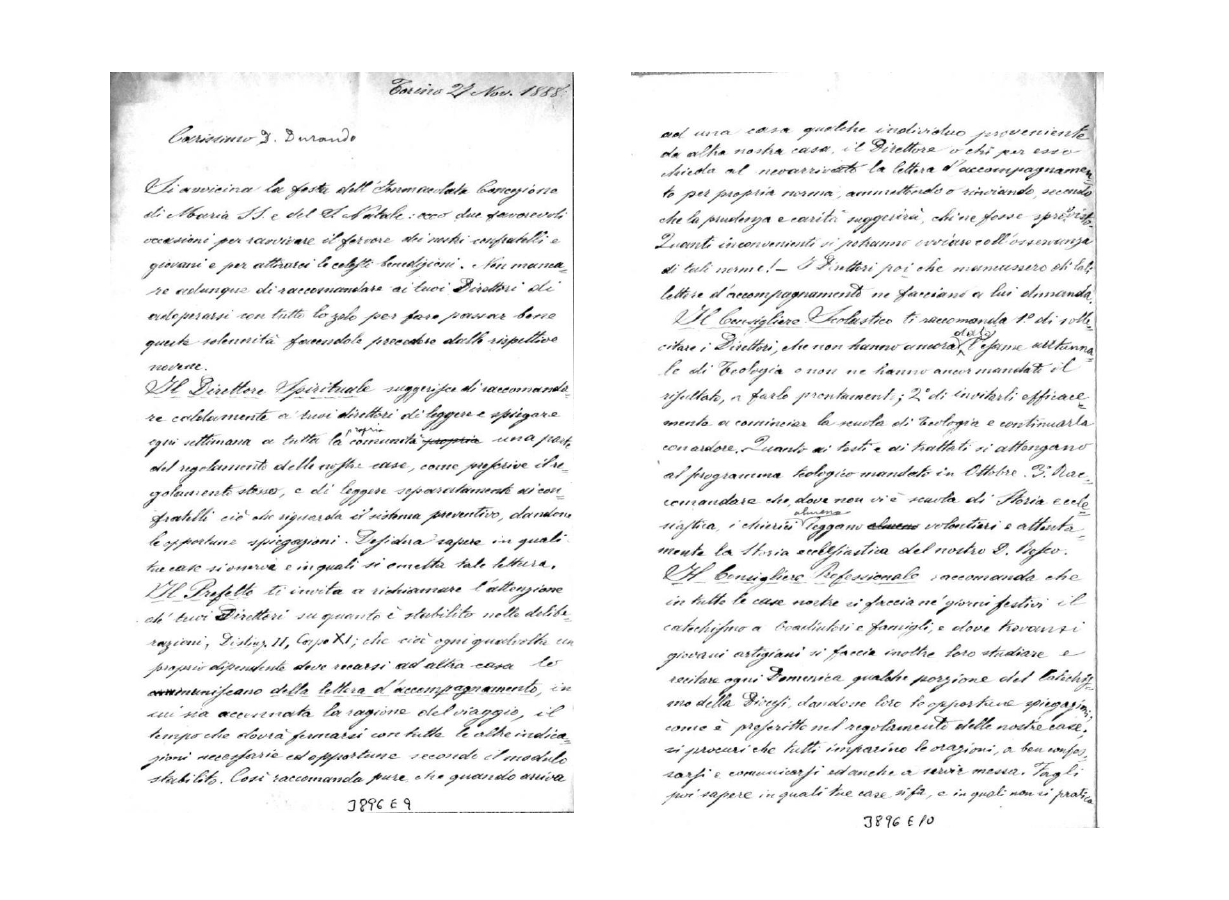 Torino 27 Nov. 1888
Carissimo D. Durando
Si avvicina la festa dell'Immacolata Concezione
di Maria SS. e del S. Natale: ecco due favorevoli
occasioni per ravvivare il fervore dei nostri confratelli e
giovani e per attirarci le celesti benedizioni. Non manca=
re adunque di raccomandare ai tuoi Direttori di
adoperarsi con tutto lo zelo per fare passar bene
queste solennità facendole precedere dalle rispettive
novene.
Il Direttore Spirituale suggerisce di raccomanda=
re caldamente a tuoi direttori di leggere e spiegare
ogni settimana a tutta la propria comunità propria una parte
del regolamento delle nostre case, come prescrive il re=
golamento stesso, e di leggere separatamente ai con=
fratelli ciò che riguarda il sistema preventivo, dandone
le opportune spiegazioni. Desidera sapere in quali
tue case si osservi e in quali si ometta tale lettura.
Il Prefetto ti invita a richiamare l'attenzione
de' tuoi Direttori su quanto è stabilito nelle delibe=
razioni, Distinz. II, Capo XI; che cioè ogni qualvolta un
proprio dipendente deve recarsi ad altra casa lo
muniscano della lettera d'accompagnamento, in
cui sia accennata la ragione del viaggio, il
tempo che dovrà fermarsi con tutte le altre indica=
zioni necessarie ed opportune secondo il modulo
stabilito. Così raccomanda pure, che quando arriva
J896 E 9
ad una casa qualche individuo proveniente
da altra nostra casa, il Direttore o chi per esso
chieda al nuovo arrivato la lettera d'accompagnamen=
to per propria norma, ammettendo o rinviando, secondo
che la prudenza e carità suggerirà, chi ne fosse sprovvisto.
Quanti inconvenienti si potranno evitare coll'osservanza
di tali norme! – I Direttori poi che mancassero di tali
lettere d'accompagnamento ne facciano a lui dimanda.
Il Consigliere Scolastico ti raccomanda 1º di solle=
citare i Direttori, che non hanno ancora dato l'esame autunna=
le di Teologia o non ne hanno ancor mandato il
risultato, a farlo prontamente; 2º di invitarli efficace=
mente a cominciar la scuola di Teologia e continuarla
con ardore. Quanto ai testi e ai trattati si attengano
al programma teologico mandato in Ottobre. 3º Rac=
comandare che, dove non vi è scuola di Storia eccle=
siastica, i chierici almeno leggano almeno volontieri e attenta=
mente la Storia ecclesiastica del nostro D. Bosco.
Il Consigliere Professionale raccomanda che
in tutte le case nostre si faccia ne' giorni festivi il
catechismo a Coadiutori e famigli, e dove trovansi
giovani artigiani si faccia inoltre loro studiare e
recitare ogni Domenica qualche porzione del Catechis=
mo della Diocesi, dandone loro le opportune spiegazioni,
come è prescritto nel regolamento delle nostre case;
si procuri che tutti imparino le orazioni, a ben confes=
sarsi e comunicarsi ed anche a servir messa. Fagli
poi sapere in quali tue case si fa, e in quali non si pratica
J896 E 10